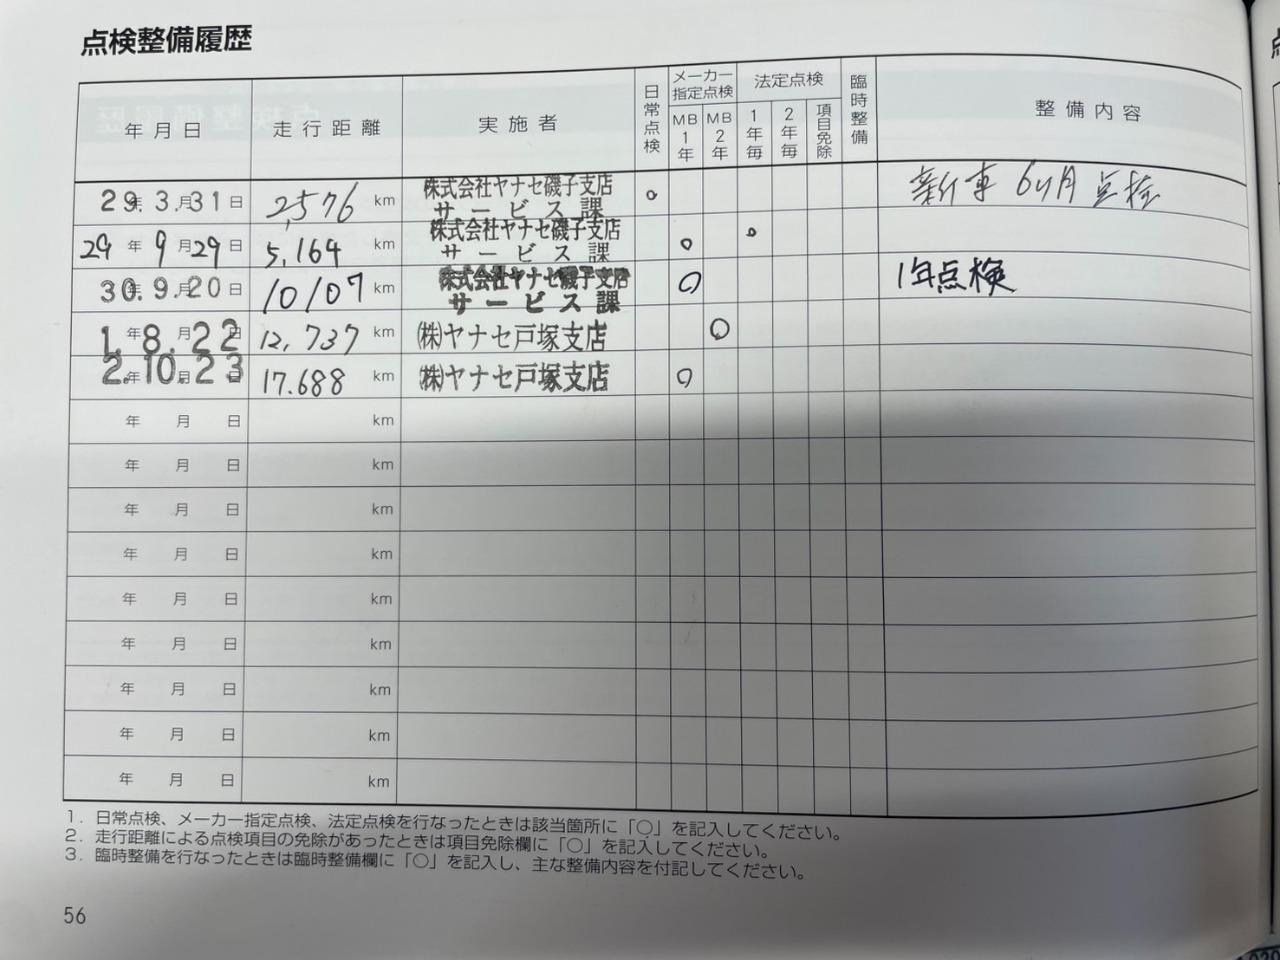 点検整備履歴
年月日 走行距離 実施者 日常点検 メーカー指定点検 MB1年 MB2年 法定点検 1年毎 2年毎 項目免除 臨時整備 整備内容
29.3.31日 2,576 km 株式会社ヤナセ磯子支店 サービス課 ○ 新車6ヶ月点検
29年9月29日 5,164 km 株式会社ヤナセ磯子支店 サービス課 ○ ○
30.9.20日 10107 km 株式会社ヤナセ磯子支店 サービス課 ○ 1年点検
1.8.22 12,737 km ㈱ヤナセ戸塚支店 ○
2.10.23 17.688 km ㈱ヤナセ戸塚支店 ○
年 月 日 km
年 月 日 km
年 月 日 km
年 月 日 km
年 月 日 km
年 月 日 km
年 月 日 km
年 月 日 km
年 月 日 km
1. 日常点検、メーカー指定点検、法定点検を行なったときは該当箇所に「○」を記入してください。
2. 走行距離による点検項目の免除があったときは項目免除欄に「○」を記入してください。
3. 臨時整備を行なったときは臨時整備欄に「○」を記入し、主な整備内容を付記してください。
56